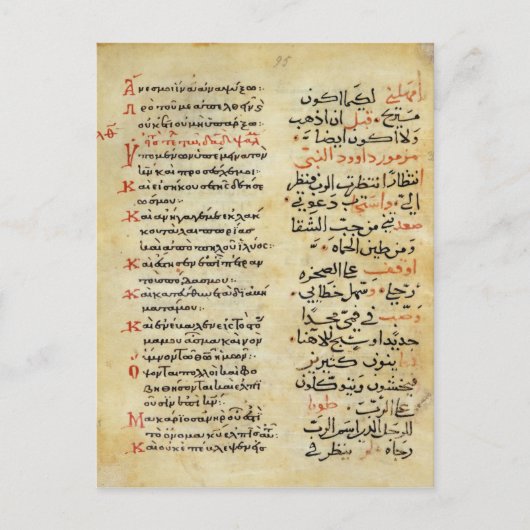 95
Ἄνες μοι ἵνα ἀναψύξω:
Πρὸ τοῦ με ἀπελθεῖν ϗ
οὐκέτι οὐ μὴ ὑπάρξω:
λθ
Ὑπομένων ὑπέμεινα τὸν
κν καὶ προσέσχε μοι:
Καὶ εἰσήκουσε τῆς δεήσε
ως μου:
Καὶ ἀνήγαγέ με ἐκ λάκ
κου ταλαιπωρίας
καὶ ἀπὸ πηλοῦ ἰλύος:
Καὶ ἔστησεν ἐπὶ πέτραν
τοὺς πόδας μου:
Καὶ κατηύθυνε τὰ διαβή
ματά μου:
Καὶ ἐνέβαλεν εἰς τὸ στό
μα μου ᾆσμα καινὸν
ὕμνον τῷ θω ἡμῶν:
Ὄψονται πολλοὶ καὶ φο
βηθήσονται καὶ ἐλπι
οῦσιν ἐπὶ κν:
Μακάριος ἀνὴρ οὗ ἐστι
τὸ ὄνομα κυ ἐλπὶς αὐτ
Καὶ οὐκ ἐπέβλεψεν εἰς
امهلني لكيما اكون
مستريح قبل ان اذهب
ولا اكون ايضا
مزمور داوود النبي
انتظارا انتظرت الرب فنظر
الي واستجاب دعوتي
اصعدني من جب الشقا
ومن طين الحماه
اوقف على الصخره
رجلي وسهل خطاي
وصب في فمي مجدا
جديدا وتسبيح لالاهنا
ينون كثيرين
فيخشون ويتوكلون
على الرب طوبا
للرجل الذي اسم الرب
رجاه لم ينظر في